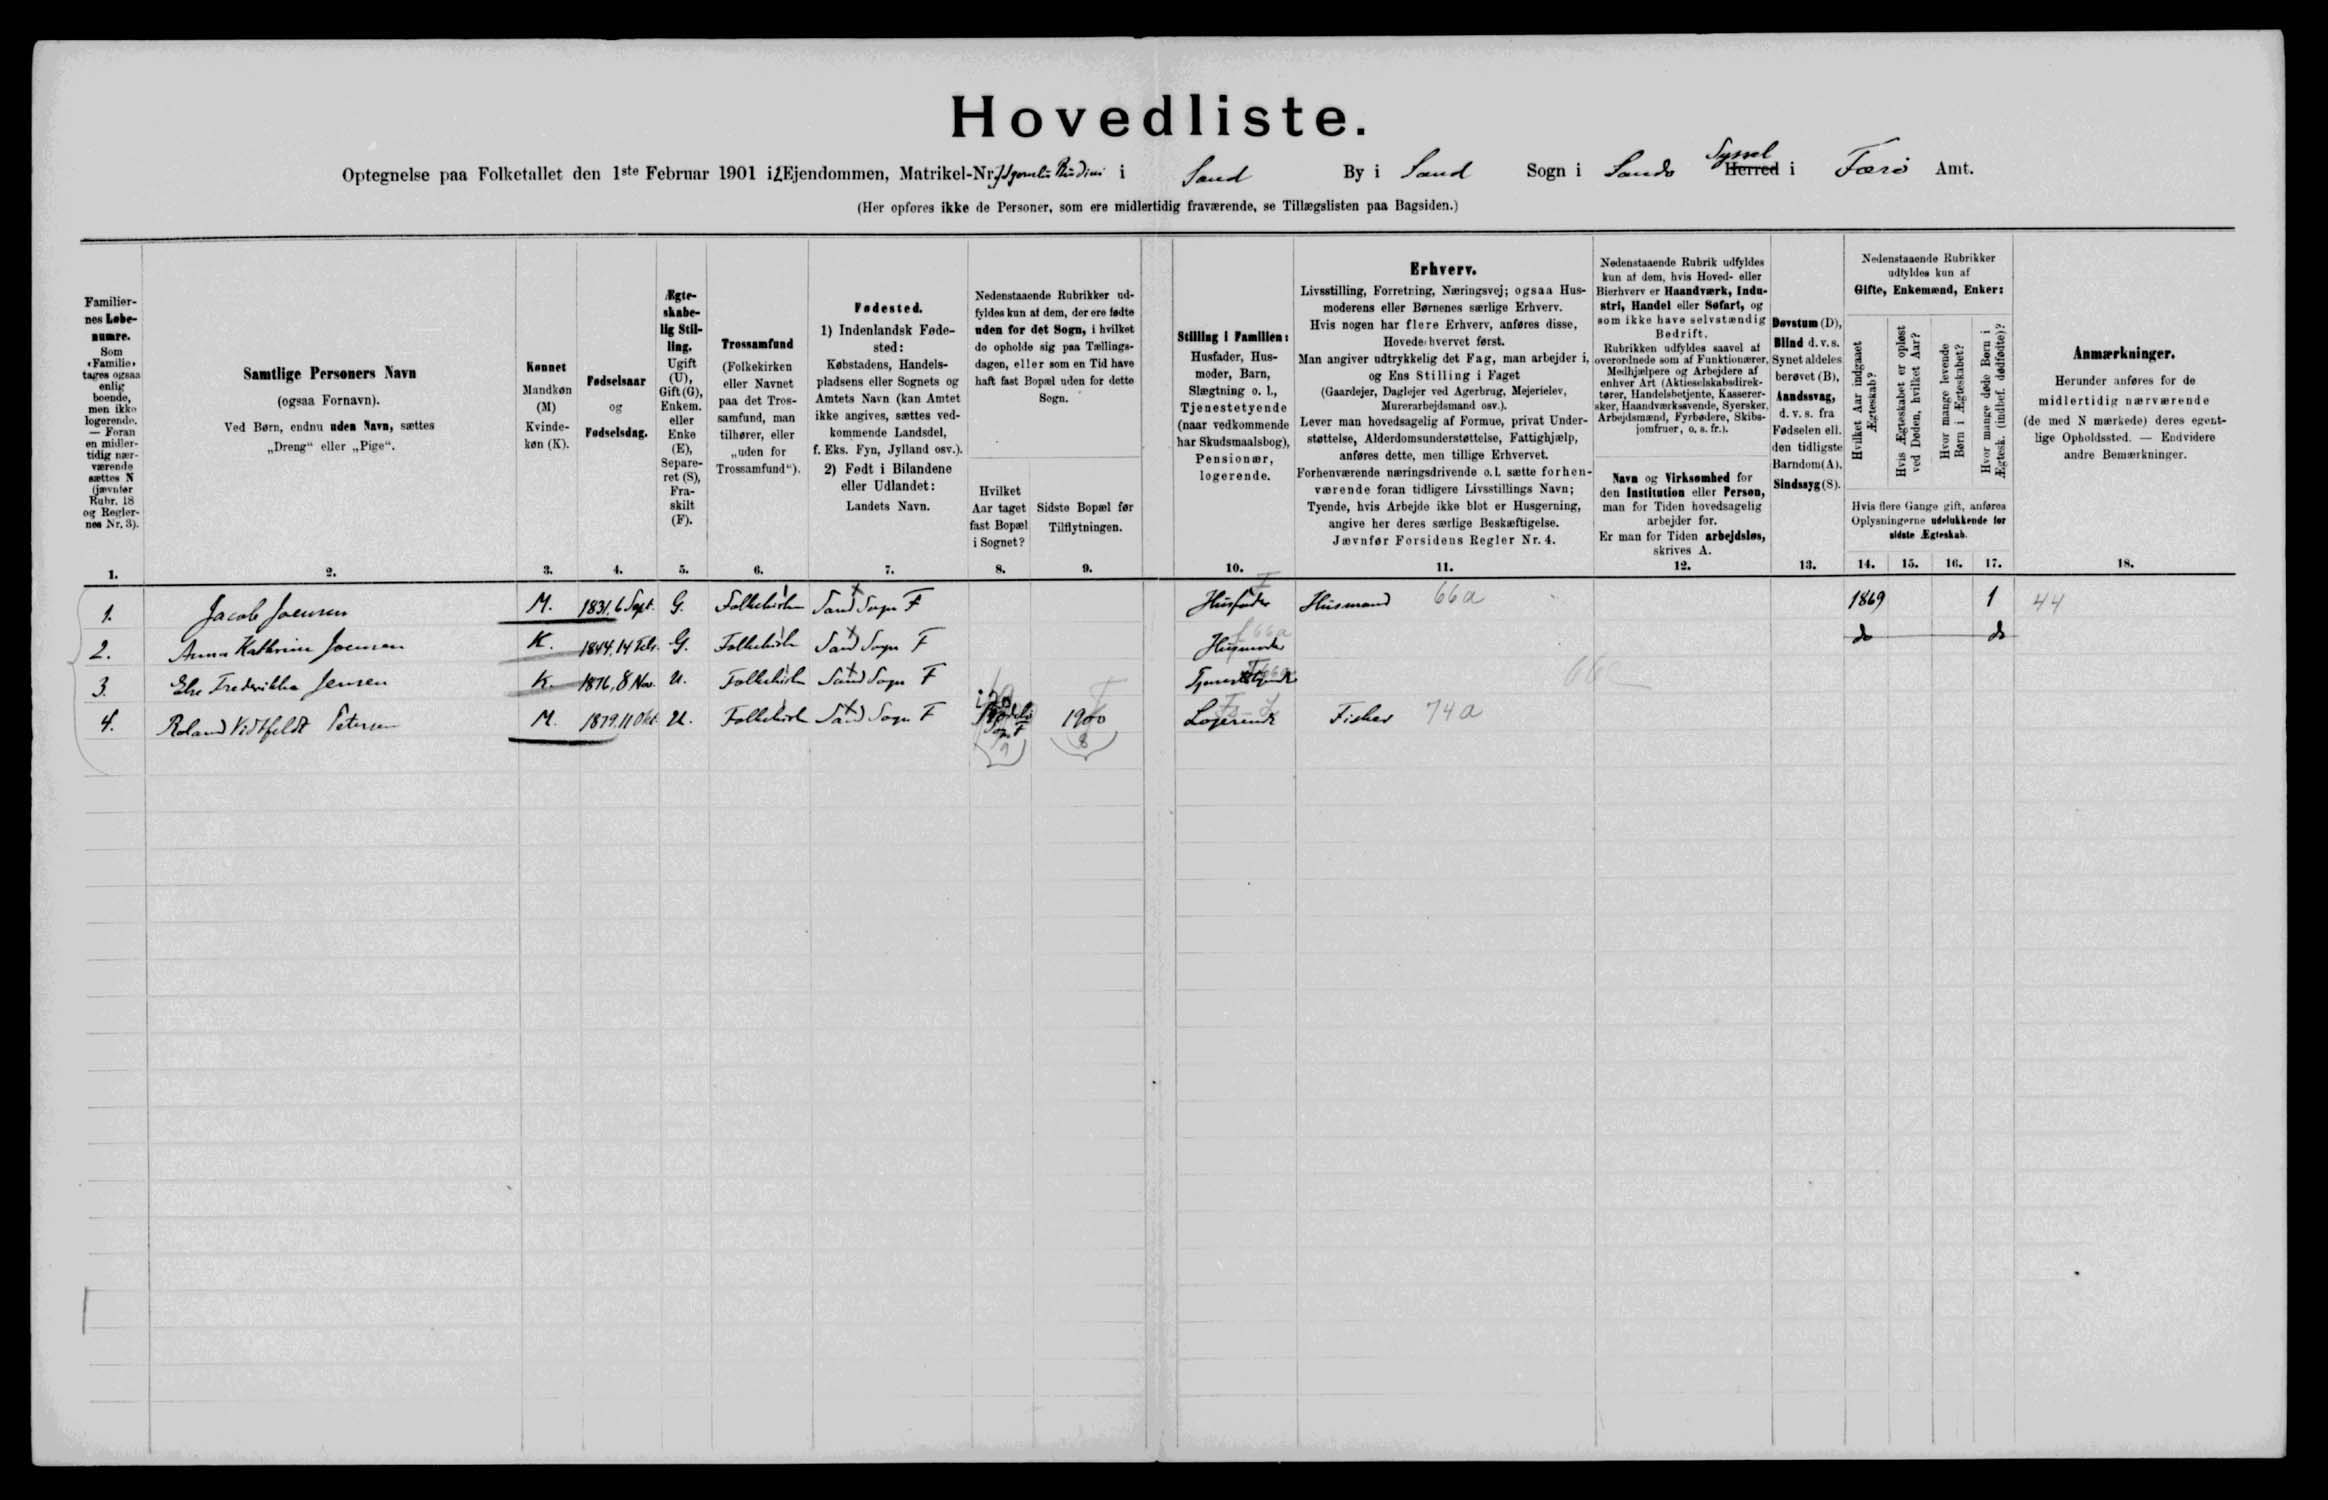 Hovedliste.
Optegnelse paa Folketallet den 1ste Februar 1901 i Ejendommen, Matrikel-Nr. i Sand By i Sand Sogn i Sands Syssel Herred i Færø Amt.
(Her opføres ikke de Personer, som ere midlertidig fraværende, se Tillægslisten paa Bagsiden.)
Familier-
nes Løbe-
numre.
Som
«Familie»
tages ogsaa
enlig
boende,
men ikke
logerende.
— Foran
en midler-
tidig nær-
værende
sættes N
(jævnfør
Rubr. 18
og Regler-
nes Nr. 3).
Samtlige Personers Navn
(ogsaa Fornavn).
Ved Børn, endnu uden Navn, sættes
„Dreng“ eller „Pige“.
Kønnet
Mandkøn
(M)
Kvinde-
køn (K).
Fødselsaar
og
Fødselsdag.
Ægte-
skabe-
lig Stil-
ling.
Ugift
(U),
Gift (G),
Enkem.
eller
Enke
(E),
Separe-
ret (S),
Fra-
skilt
(F).
Trossamfund
(Folkekirken
eller Navnet
paa det Tros-
samfund, man
tilhører, eller
„uden for
Trossamfund“).
Fødested.
1) Indenlandsk Føde-
sted:
Købstadens, Handels-
pladsens eller Sognets og
Amtets Navn (kan Amtet
ikke angives, sættes ved-
kommende Landsdel,
f. Eks. Fyn, Jylland osv.).
2) Født i Bilandene
eller Udlandet:
Landets Navn.
Nedenstaaende Rubrikker ud-
fyldes kun af dem, der ere fødte
uden for det Sogn, i hvilket
de opholde sig paa Tællings-
dagen, eller som en Tid have
haft fast Bopæl uden for dette
Sogn.
Hvilket
Aar taget
fast Bopæl
i Sognet?
Sidste Bopæl før
Tilflytningen.
Stilling i Familien:
Husfader, Hus-
moder, Barn,
Slægtning o. l.,
Tjenestetyende
(naar vedkommende
har Skudsmaalsbog),
Pensionær,
logerende.
Erhverv.
Livsstilling, Forretning, Næringsvej; ogsaa Hus-
moderens eller Børnenes særlige Erhverv.
Hvis nogen har flere Erhverv, anføres disse,
Hovederhvervet først.
Man angiver udtrykkelig det Fag, man arbejder i,
og Ens Stilling i Faget
(Gaardejer, Daglejer ved Agerbrug, Mejerielev,
Murerarbejdsmand osv.).
Lever man hovedsagelig af Formue, privat Under-
støttelse, Alderdomsunderstøttelse, Fattighjælp,
anføres dette, men tillige Erhvervet.
Forhenværende næringsdrivende o. l. sætte forhen-
værende foran tidligere Livsstillings Navn;
Tyende, hvis Arbejde ikke blot er Husgerning,
angive her deres særlige Beskæftigelse.
Jævnfør Forsidens Regler Nr. 4.
Nedenstaaende Rubrik udfyldes
kun af dem, hvis Hoved- eller
Bierhverv er Haandværk, Indu-
stri, Handel eller Søfart, og
som ikke have selvstændig
Bedrift.
Rubrikken udfyldes saavel af
overordnede som af Funktionærer,
Medhjælpere og Arbejdere af
enhver Art (Aktieselskabsdirek-
tører, Handelsbetjente, Kasserer-
sker, Haandværkssvende, Syersker,
Arbejdsmænd, Fyrbødere, Skibs-
jomfruer, o. s. fr.).
Navn og Virksomhed for
den Institution eller Person,
man for Tiden hovedsagelig
arbejder for.
Er man for Tiden arbejdsløs,
skrives A.
Døvstum (D),
Blind d. v. s.
Synet aldeles
berøvet (B),
Aandssvag,
d. v. s. fra
Fødselen ell.
den tidligste
Barndom (A),
Sindssyg (S).
Nedenstaaende Rubrikker
udfyldes kun af
Gifte, Enkemænd, Enker:
Hvilket Aar indgaaet
Ægteskab?
Hvis Ægteskabet er opløst
ved Døden, hvilket Aar?
Hvor mange levende
Børn i Ægteskabet?
Hvor mange døde Børn i
Ægtesk. (indbef. dødfødte)?
Hvis flere Gange gift, anføres
Oplysningerne udelukkende for
sidste Ægteskab.
Anmærkninger.
Herunder anføres for de
midlertidig nærværende
(de med N mærkede) deres egent-
lige Opholdssted. — Endvidere
andre Bemærkninger.
1. 2. 3. 4. 5. 6. 7. 8. 9. 10. 11. 12. 13. 14. 15. 16. 17. 18.
1. Jacob Joensen M. 1831, 6 Sept. G. Folkekirken Sand Sogn F Husfader Husmand 66a 1869 1 44
2. Anna Kathrine Joensen K. 1844, 14 Feb. G. Folkekirk Sand Sogn F Husmoder do do
3. Else Frederikka Jensen K. 1876, 8 Nov. U. Folkekirk Sand Sogn F Tjenestetyende
4. Roland Vidtfeldt Petersen M. 1879, 11 Okt. U. Folkekirk Sand Sogn F 1900 Logerende Fisker 74a
9 8